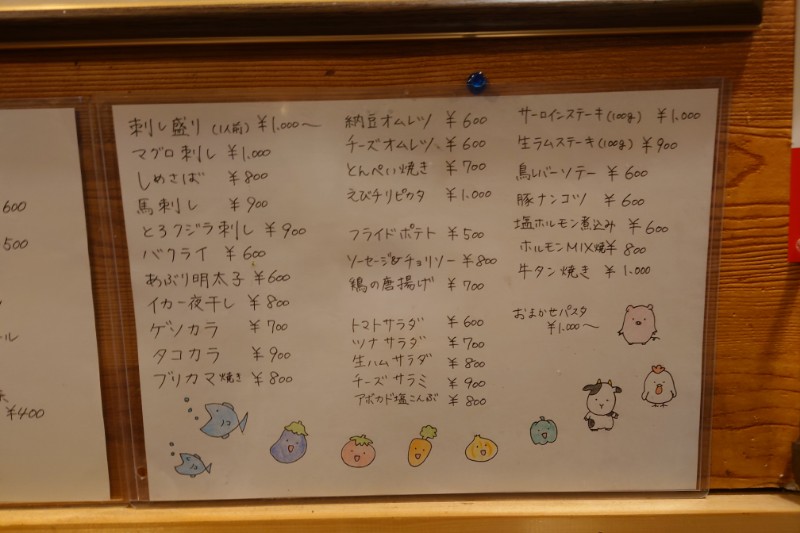 600
500
ール
¥400
刺し盛り (1人前) ¥1.000〜
マグロ刺し ¥1.000
しめさば ¥800
馬刺し ¥900
とろクジラ刺し ¥900
バクライ ¥600
あぶり明太子 ¥600
イカ一夜干し ¥800
ゲソカラ ¥700
タコカラ ¥900
ブリカマ焼き ¥800
納豆オムレツ ¥600
チーズオムレツ ¥600
とんぺい焼き ¥700
えびチリピカタ ¥1.000
フライドポテト ¥500
ソーセージ&チョリソー ¥800
鶏の唐揚げ ¥700
トマトサラダ ¥600
ツナサラダ ¥700
生ハムサラダ ¥800
チーズサラミ ¥900
アボカド塩こんぶ ¥800
サーロインステーキ(100g) ¥1.000
生ラムステーキ(100g) ¥900
鳥レバーソテー ¥600
豚ナンコツ ¥600
塩ホルモン煮込み ¥600
ホルモンMIX焼 ¥800
牛タン焼き ¥1.000
おまかせパスタ
¥1.000〜